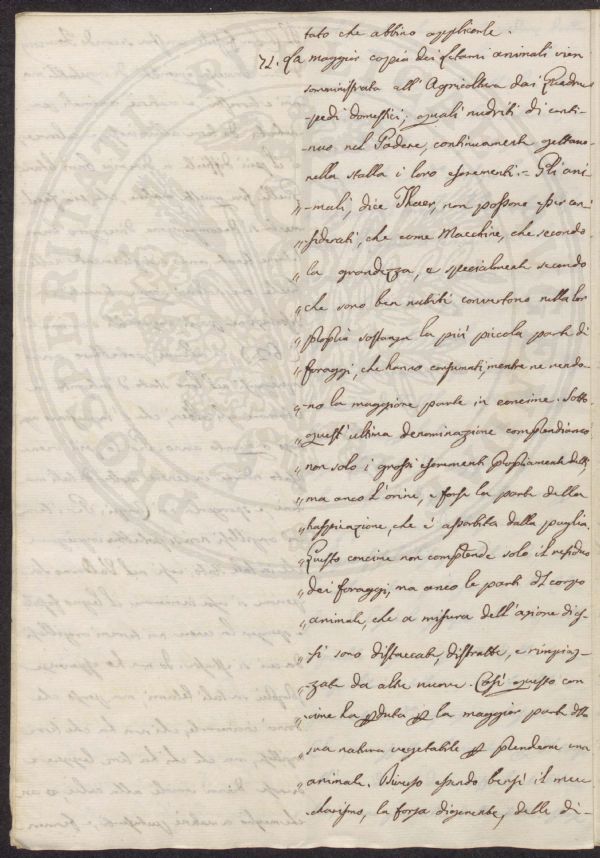 tato che abbino applicarle.
72. La maggior copia dei letami animali vien
somministrata all'Agricoltura dai Quadru
-pedi domestici, quali nudriti di conti-
nuo nel Podere, continuamente gettano
nella stalla i loro escrementi = Gli ani
" -mali, dice Thaer, non possono esser con
" -siderati, che come Macchine, che secondo
" la grandezza, e specialmente secondo
" che sono ben nutriti convertono nella lor
" propria sostanza la più piccola parte di
" foraggi, che hanno consumati, mentre ne rendo-
" -no la maggiore parte in concime. Sotto
" quest'ultima denominazione comprendiamo
" non solo i grossi escrementi propriamente detti
" ma anco l'orine, e forse la parte della
" traspirazione, che è assorbita dalla paglia.
" Questo concime non comprende solo il residuo
" dei foraggi, ma anco le parti del corpo
" animale, che a misura dell'azione di es-
" -si sono distaccate, distratte, e rimpiaz-
" zate da altre nuove. Così questo con
" cime ha perduta per la maggior parte della
" sua natura vegetabile per prenderne una
" animale. Diverso essendo bensì il mec-
" canismo, la forza digerente, delle di-